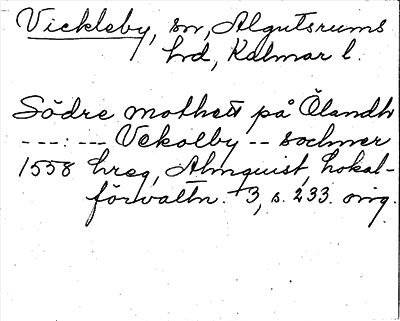 Vickleby, sn, Algutsrums
hd, Kalmar l.
Södre mothett på Ölandh
---:--- Vekolby -- sochner
1558 hreg, Almquist, Lokal-
förvaltn. 3, s. 233. orig.